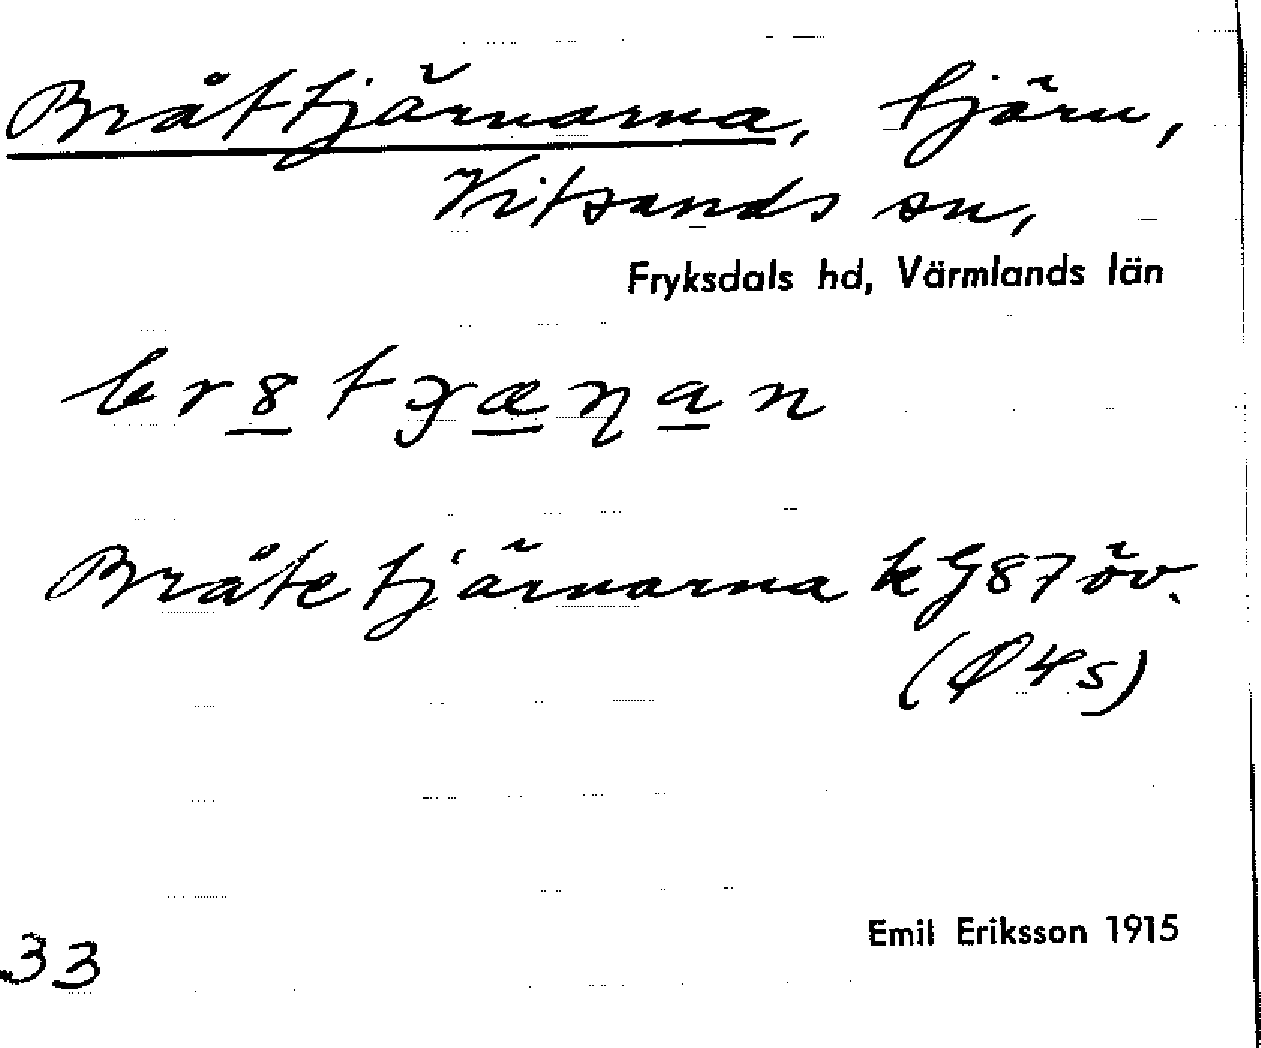 Bråttjärnarna, tjärn,
Vitsands sn,
Fryksdals hd, Värmlands län
Bråtetjärnarna k G87 öv.
(Ø4s)
Emil Eriksson 1915
33